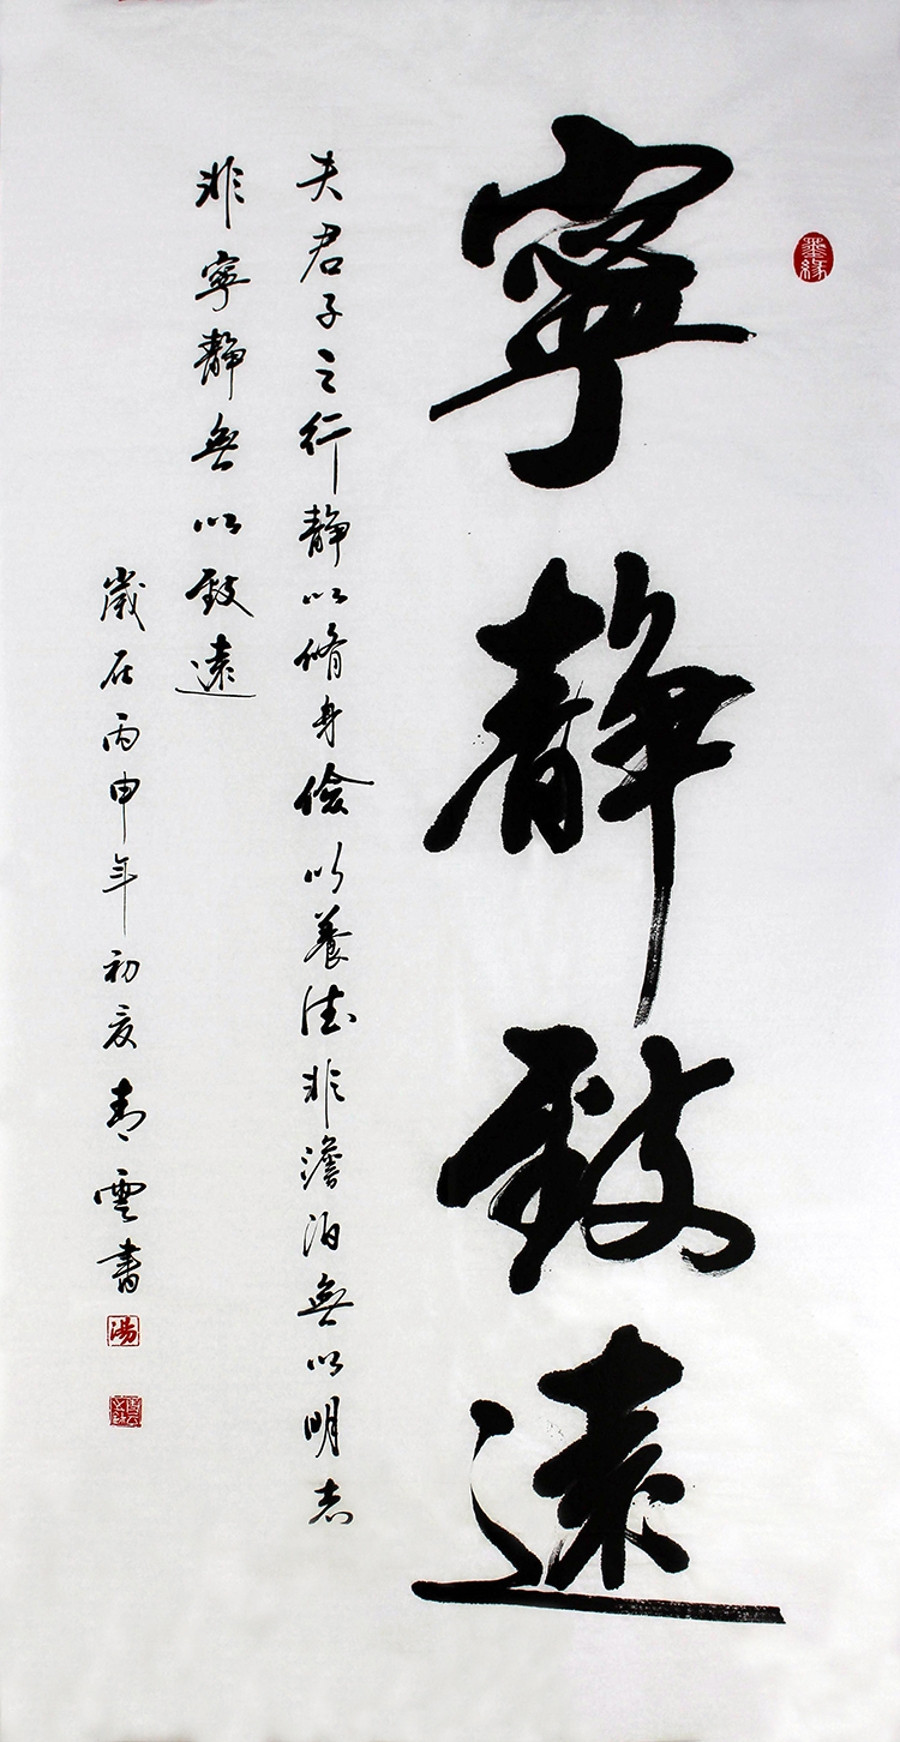 墨緣
寧靜致遠
夫君子之行靜以脩身儉以養德非澹泊無以明志
非寧靜無以致遠
歲在丙申年初夏青雲書
湯